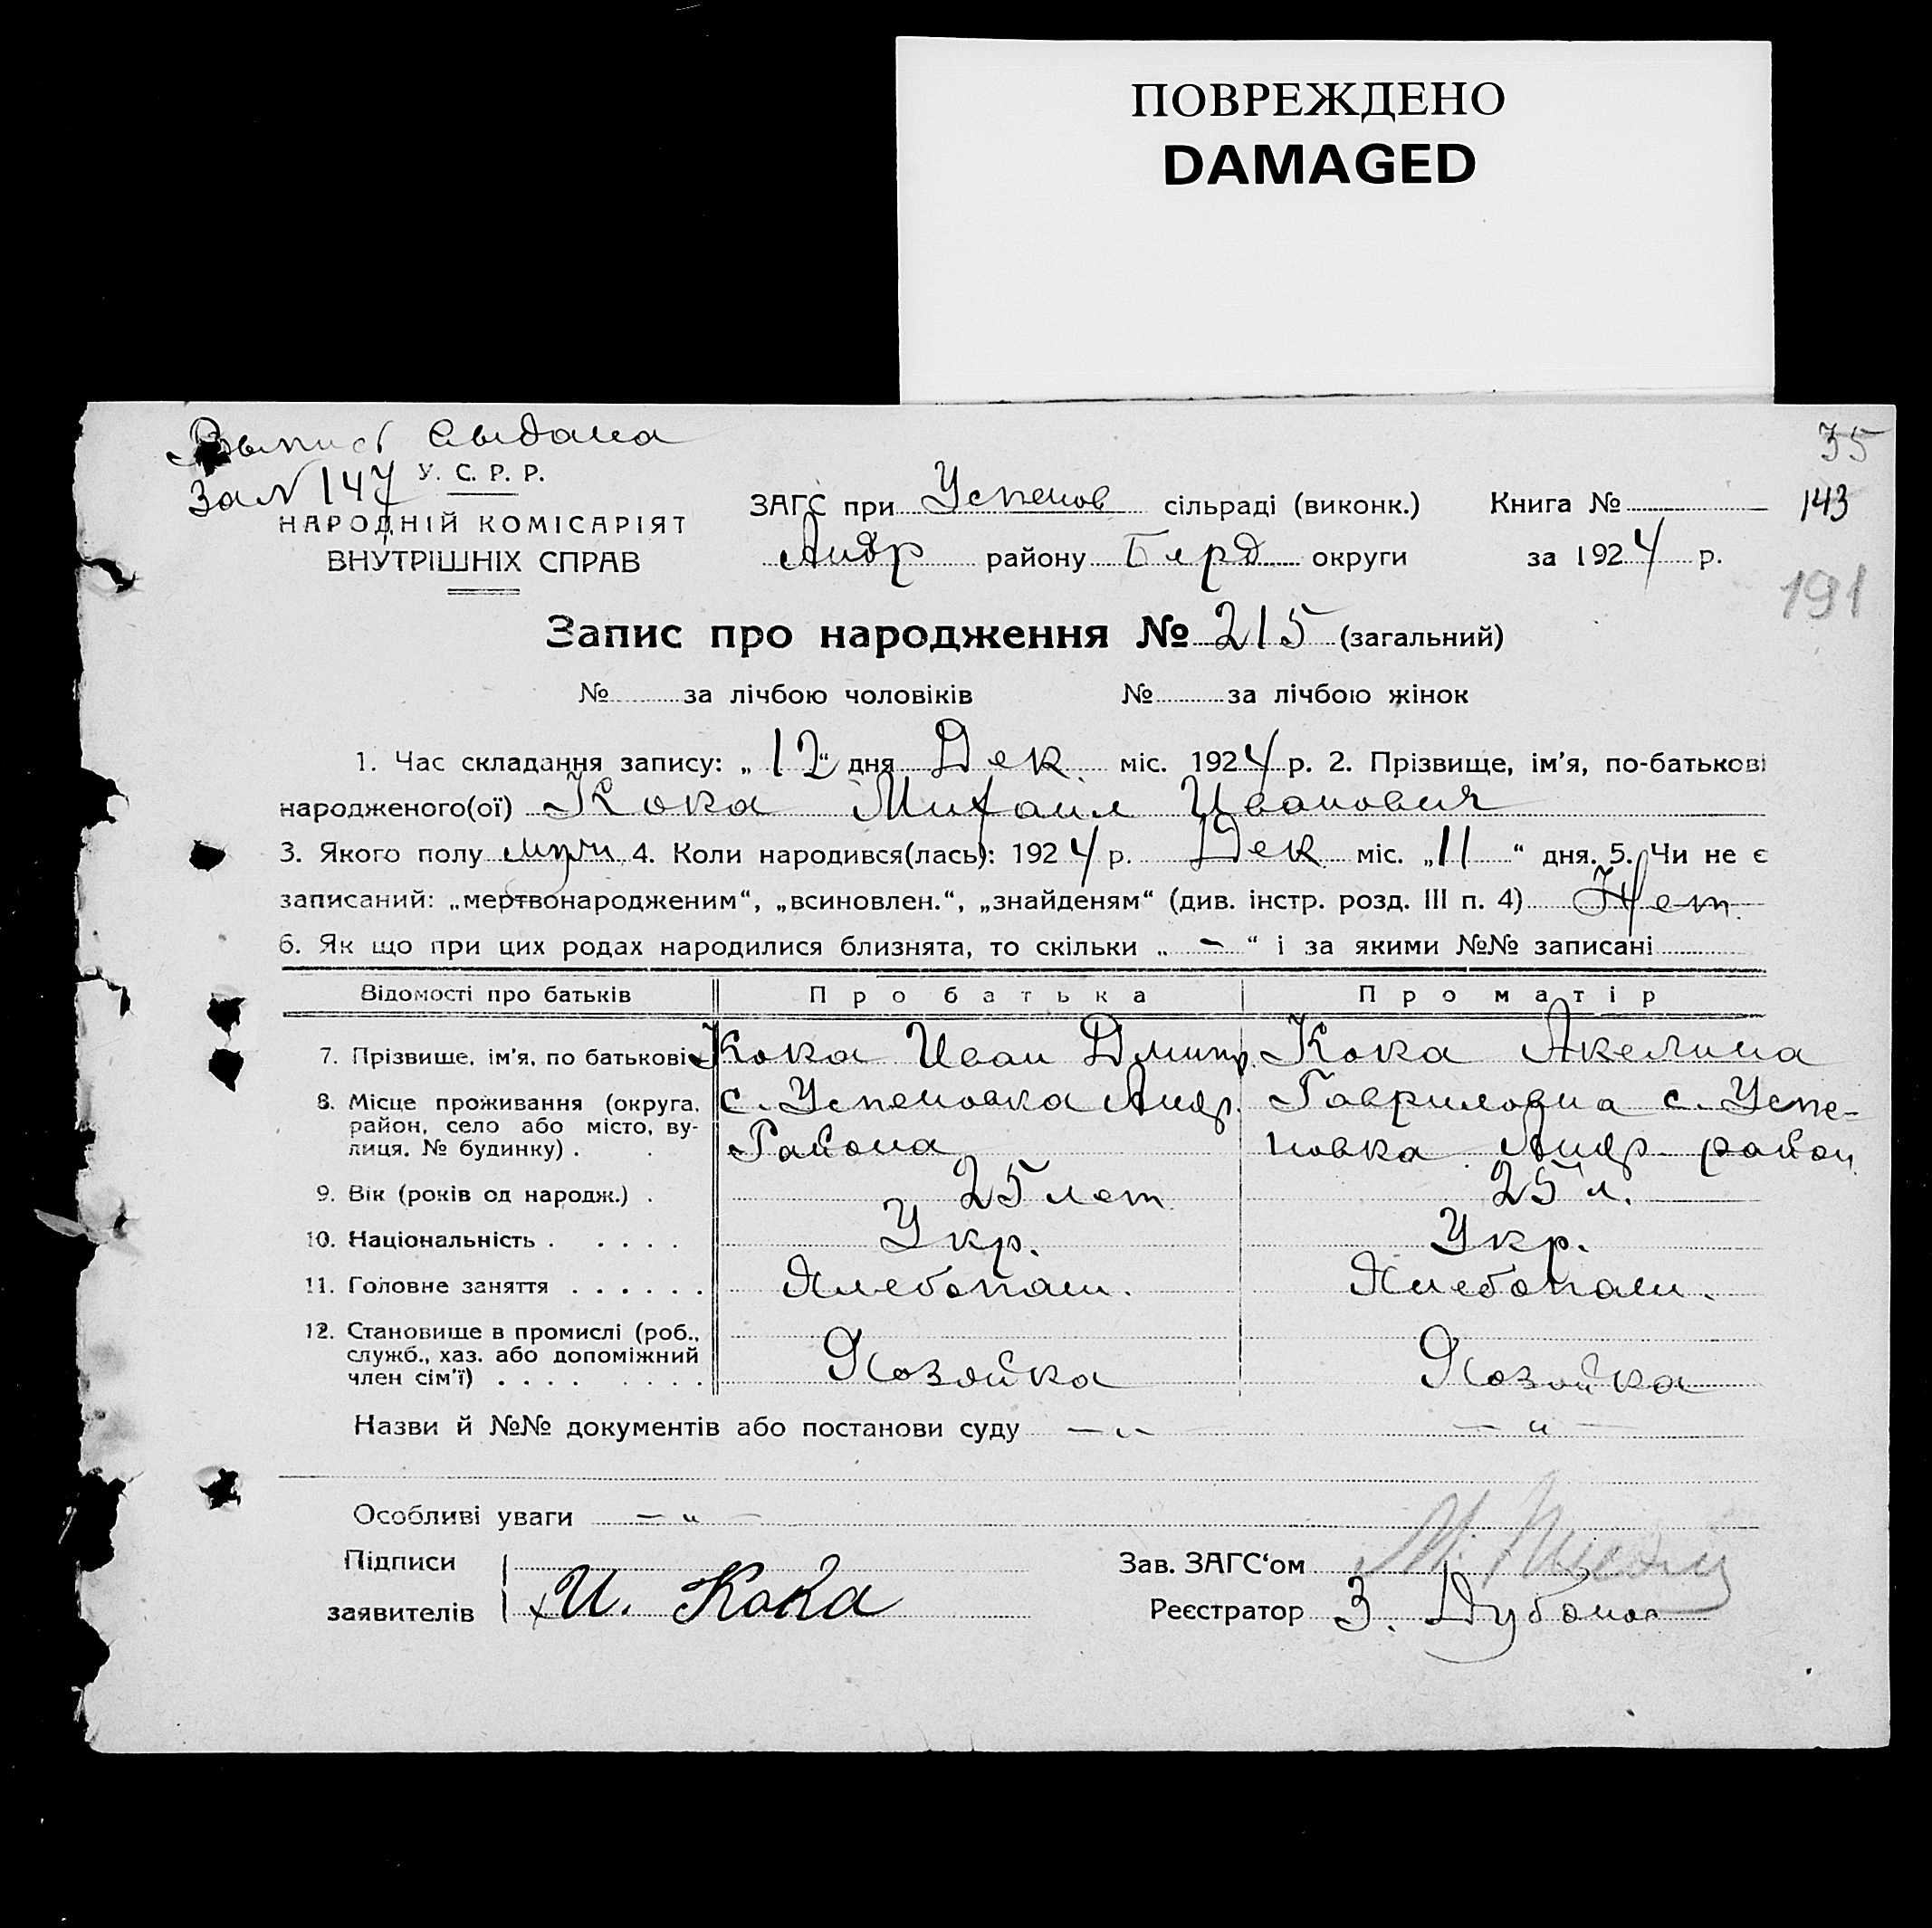 ПОВРЕЖДЕНО
DAMAGED
Выпись выдана
за N 147
35
У. С. Р. Р.
НАРОДНІЙ КОМІСАРІЯТ
ВНУТРІШНІХ СПРАВ
ЗАГС при Успенов сільраді (виконк.) Книга № 143
Андр району Берд округи за 1924 р.
191
Запис про народження № 215 (загальний)
№ за лічбою чоловіків № за лічбою жінок
1. Час складання запису: „12“ дня Дек. міс. 1924 р. 2. Прізвище, ім'я, по-батькові
народженого(ої) Кока Михаил Иванович
3. Якого полу муж. 4. Коли народився(лась): 1924 р. Дек міс. „11“ дня. 5. Чи не є
записаний: „мертвонародженим“, „всиновлен.“, „знайденям“ (див. інстр. розд. III п. 4) Нет.
6. Як що при цих родах народилися близнята, то скільки „ - “ і за якими №№ записані
Відомості про батьків Про батька Про матір
7. Прізвище, ім'я, по батькові Кока Иван Дмитр. Кока Акелина
8. Місце проживання (округа, с. Успеновка Андр. Гавриловна с. Успе-
район, село або місто, ву-
лиця, № будинку) . . Района новка Андр. район
9. Вік (років од народж.) . 25 лет 25 л.
10. Національність . . . . . Укр. Укр.
11. Головне заняття . . . . . . Хлебопаш. Хлебопаш.
12. Становище в промислі (роб.,
служб., хаз. або допоміжний
член сім'ї) . . . . . . . . Хозяйка Хозяйка
Назви й №№ документів або постанови суду — „ — — „ —
Особливі уваги — „ —
Підписи Зав. ЗАГС‘ом
заявителів И. Кока Реєстратор З.